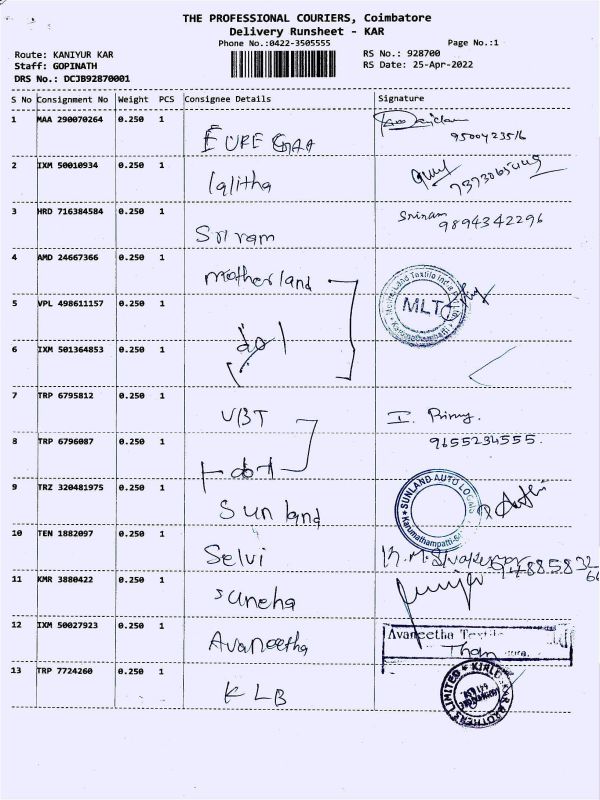 THE PROFESSIONAL COURIERS, Coimbatore
Delivery Runsheet - KAR
Phone No.:0422-3505555
Page No.:1
Route: KANIYUR KAR
Staff: GOPINATH
DRS No.: DCJB92870001
RS No.: 928700
RS Date: 25-Apr-2022
S No Consignment No Weight PCS Consignee Details Signature
1 MAA 290070264 0.250 1
9500423516
2 IXM 50010934 0.250 1 lalitha
3 HRD 716384584 0.250 1 Sriram Sriram
9894342296
4 AMD 24667366 0.250 1 motherland
MLT
5 VPL 498611157 0.250 1 do
6 IXM 501364853 0.250 1
7 TRP 6795812 0.250 1 VBT
8 TRP 6796087 0.250 1 9655234555.
9 TRZ 320481975 0.250 1 Sun land
SUNLAND AUTO
10 TEN 1882097 0.250 1 Selvi
11 KMR 3880422 0.250 1 Suneha
12 IXM 50027923 0.250 1 Avaneetha
Avaneetha
13 TRP 7724260 0.250 1 KLB
BROTHERS LIMITED